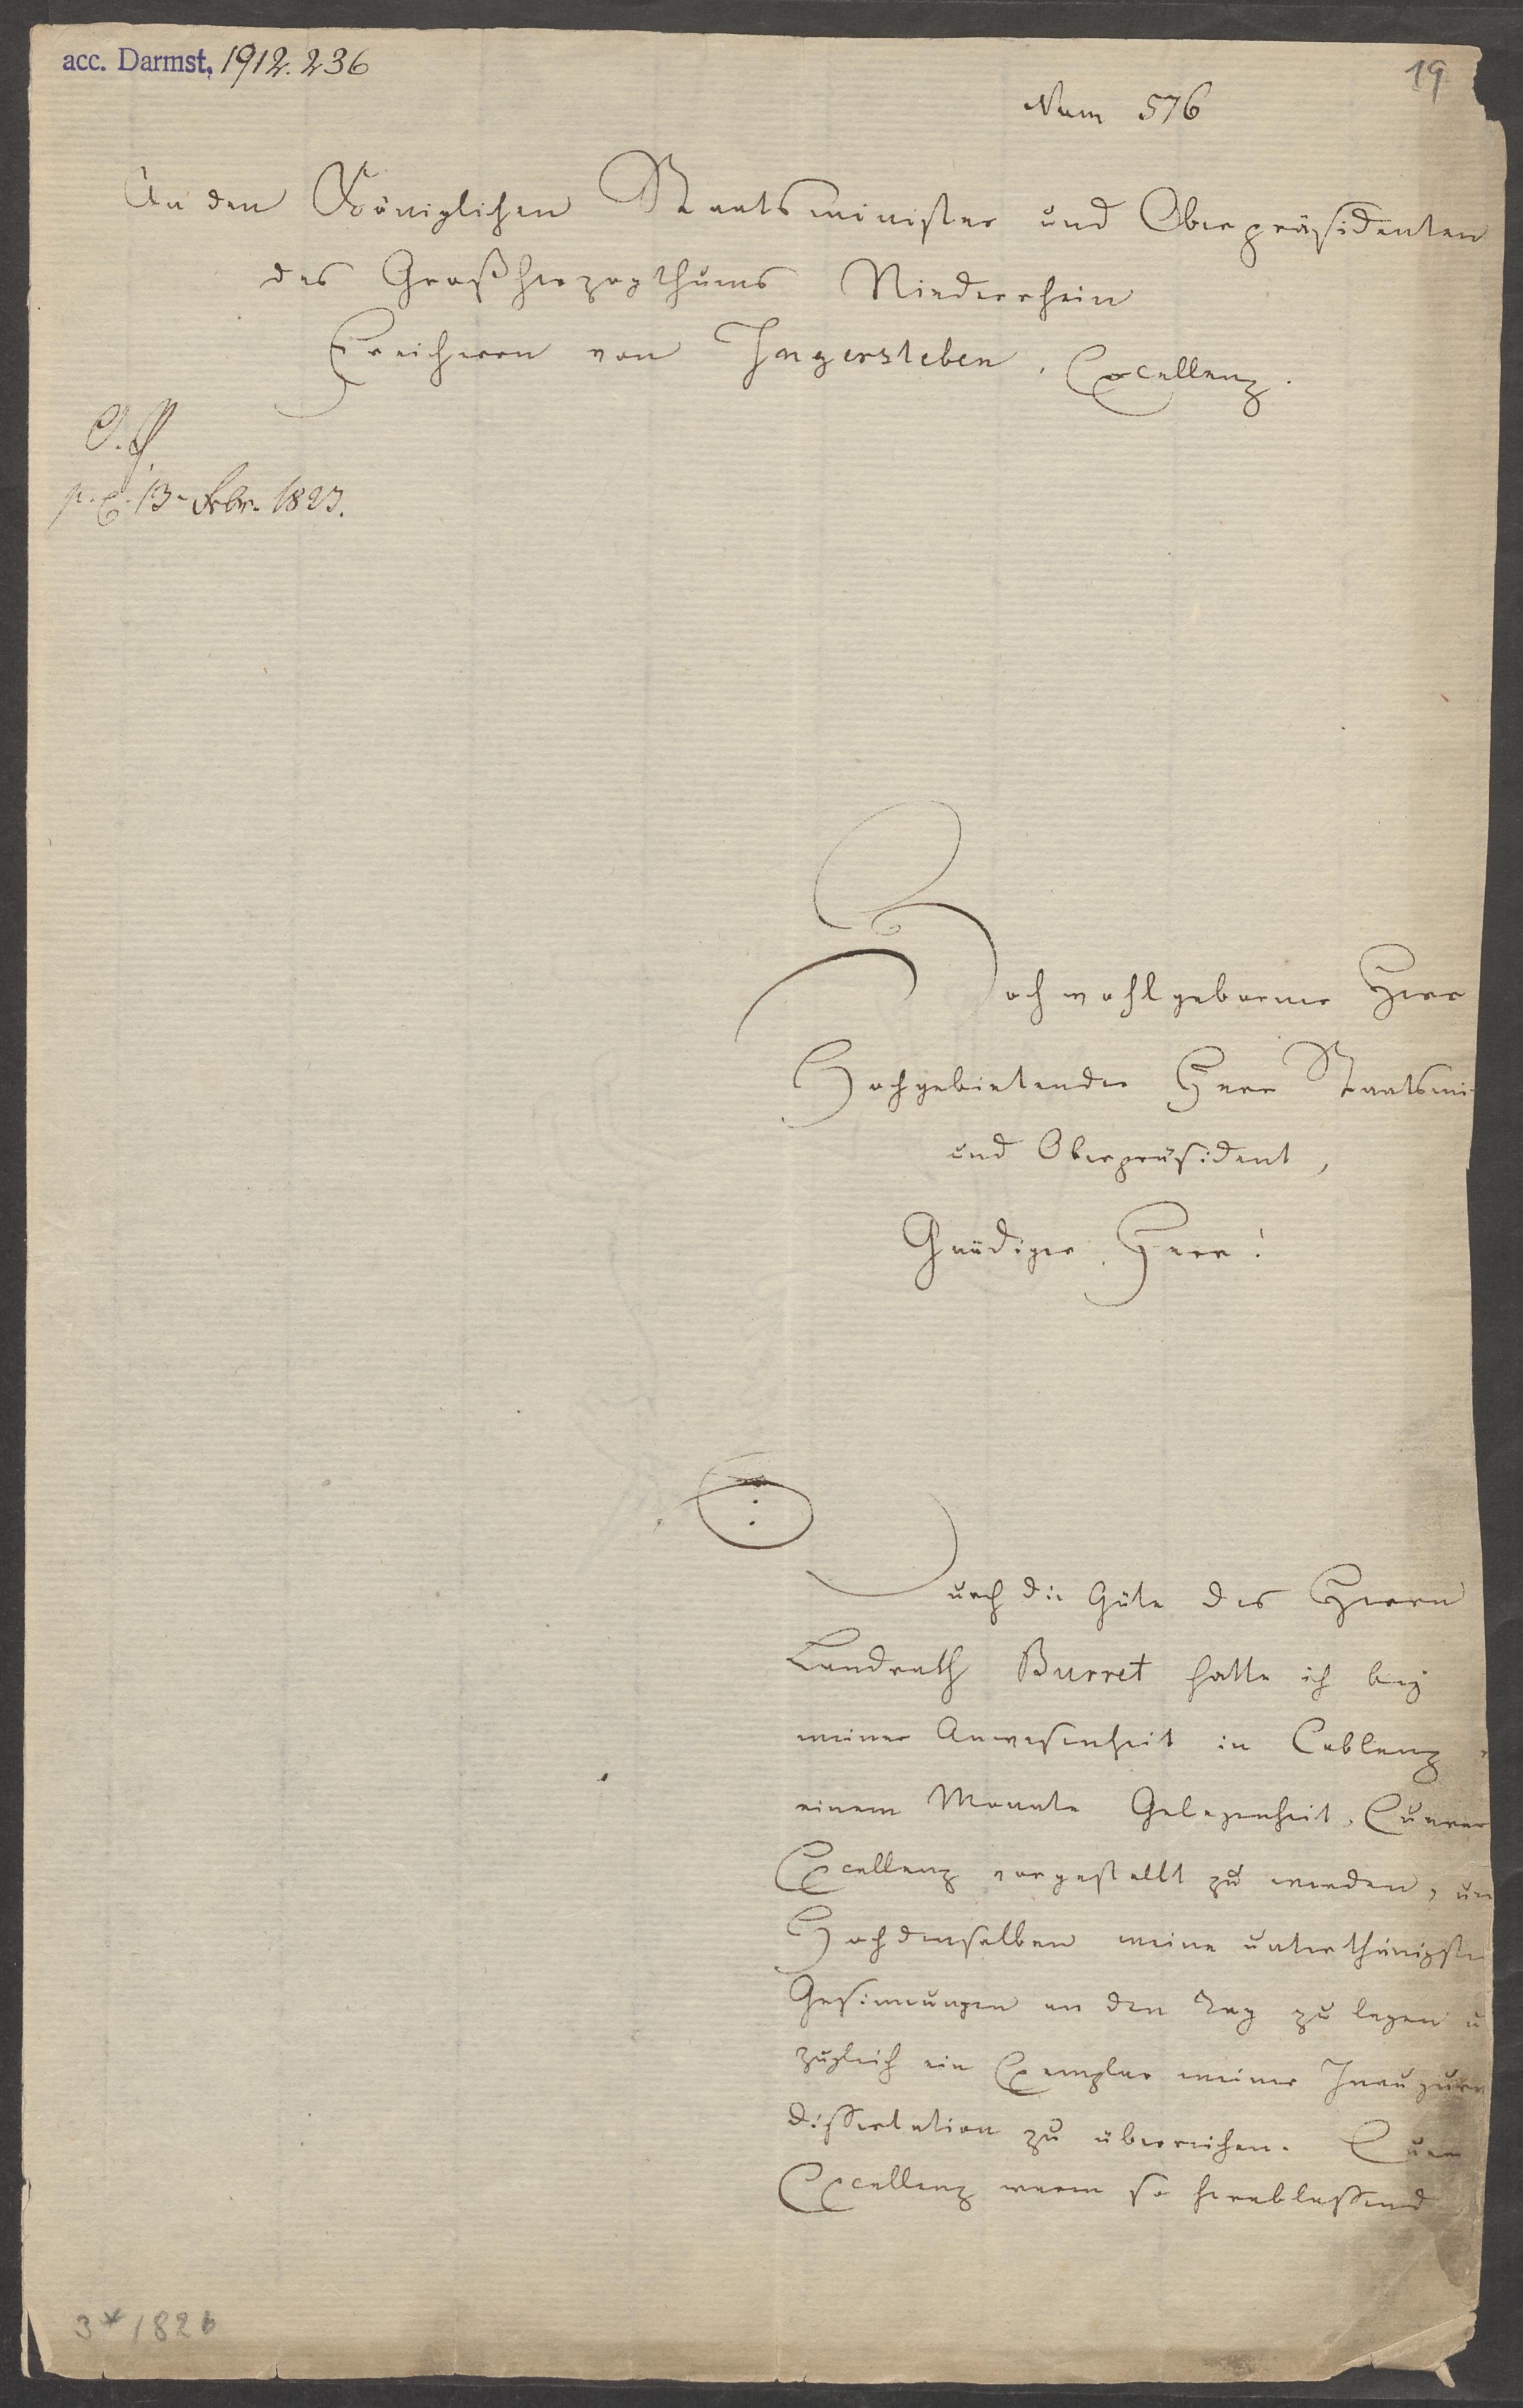 acc. Darmst. 1912.236
19
Num 576
An den Königlichen Staatsminister und Oberpräsidenten
des Großherzogthums Niederrhein
Freiherrn von Ingersleben, Excellenz.
13 Febr. 1823.
Hochwohlgeborner Herr
Hochgebietender Herr Staatsmi
und Oberpräsident,
Gnädiger Herr!
Durch die Güte des Herrn
Landrath Burret hatte ich bey
meiner Anwesenheit in Coblenz
einem Monate Gelegenheit, Euerer
Excellenz vorgestellt zu werden, un
Hochdenselben meine unterthänigste
Gesinnungen an den Tag zu legen u
zugleich ein Exemplar meiner Inaugura
dissertation zu überreichen. Eure
Excellenz waren so herablassend
3* 1820